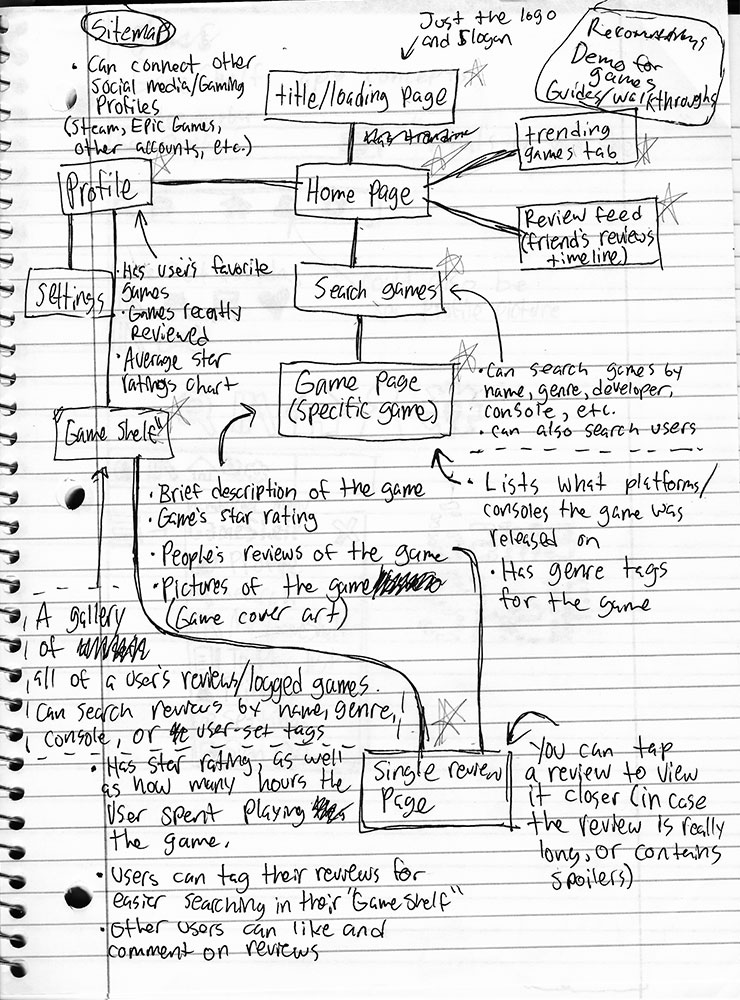 Sitemap
Just the logo
and slogan
Recommendations
Demo for
games
Guides/walkthroughs
• Can connect other
Social media/Gaming
Profiles
(Steam, Epic Games,
other accounts, etc.)
title/loading page
trending
games tab
Profile
Home Page
Review feed
(friend's reviews
timeline)
Settings
• Has user's favorite
games
• Games recently
Reviewed
• Average star
ratings chart
Search games
Game Page
(specific game)
• Can search games by
name, genre, developer,
console, etc.
• can also search users
"Game Shelf"
• Brief description of the game
• Game's star rating
• People's reviews of the game
• Pictures of the game
(Game cover art)
• Lists what platforms/
consoles the game was
released on
• Has genre tags
for the game
A gallery
of
all of a user's reviews/logged games.
Can search reviews by name, genre,
console, or user-set tags
Single review
Page
You can tap
a review to view
it closer (in case
the review is really
long, or contains
spoilers)
• Has star rating, as well
as how many hours the
User spent playing
the game.
• Users can tag their reviews for
easier searching in their "Game Shelf"
• Other users can like and
comment on reviews